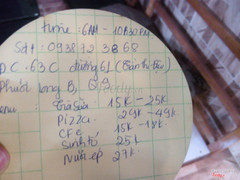 time: 6AM - 10h30PM
Sđt: 0938723868
Đ.C: 63C đường 61 (
Phước long B, Q9
Menu: Trà sữa: 15k - 25k
Pizza 29k - 49k
Cfe 15k - 18k
Sinh tố 25k
Nước ép 27k